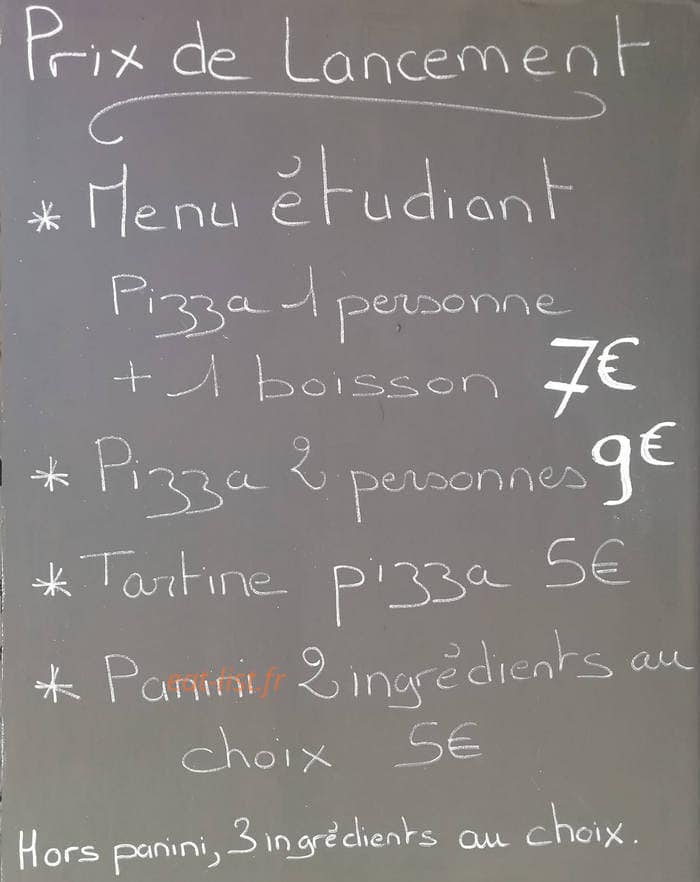 Prix de Lancement
* Menu étudiant
Pizza 1 personne
+ 1 boisson 7€
* Pizza 2 personnes 9€
* Tartine pizza 5€
* Panini 2 ingrédients au
eat-list.fr
choix 5€
Hors panini, 3 ingrédients au choix.